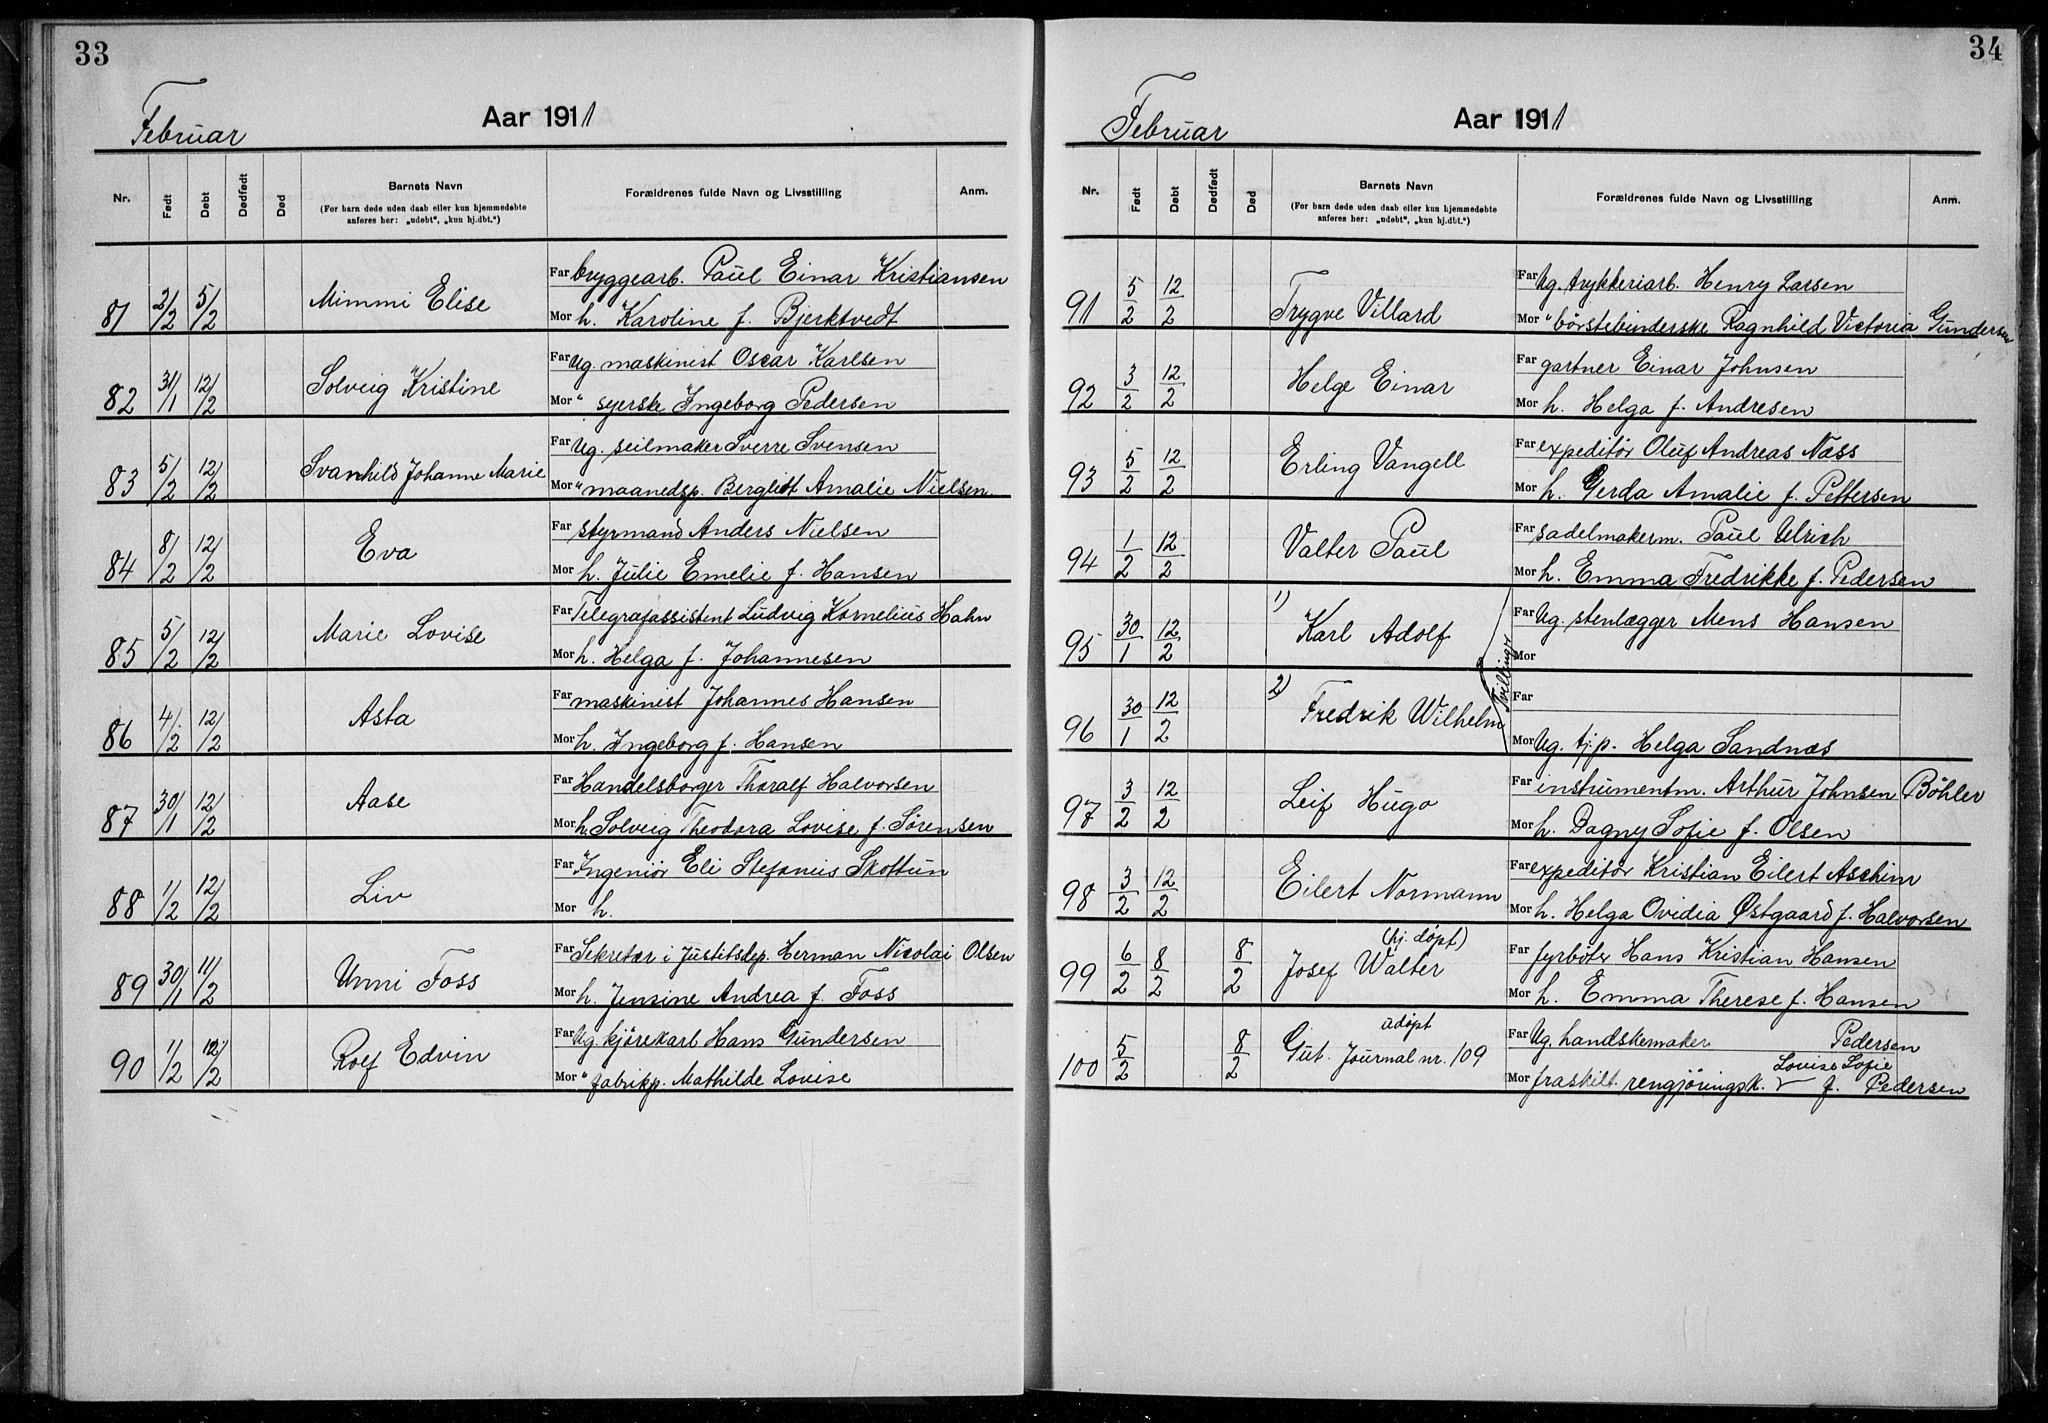 33
Februar
Aar 1911
Nr.
Født
Døbt
Dødfødt
Død
Barnets Navn
(For barn døde uden daab eller kun hjemmedøbte
anføres her: „udøbt“, „kun hj.dbt.“)
Forældrenes fulde Navn og Livsstilling
Anm.
81 2/2 5/2 Mimmi Elise
Far bryggearb. Paul Einar Kristiansen
Mor h. Karoline f. Bjerktvedt
82 31/1 12/2 Solveig Kristine
Far Ug. maskinist Oscar Karlsen
Mor " syerske Ingeborg Pedersen
83 5/2 12/2 Svanhild Johanne Marie
Far Ug. seilmaker Sverre Svensen
Mor " maanedsp. Bergliot Amalie Nielsen
84 8/2 12/2 Eva
Far styrmand Anders Nielsen
Mor h. Julie Emelie f. Hansen
85 5/2 12/2 Marie Lovise
Far Telegrafassistent Ludvig Kornelius Hahn
Mor h. Helga f. Johannesen
86 4/2 12/2 Asta
Far maskinist Johannes Hansen
Mor h. Ingeborg f. Hansen
87 30/1 12/2 Aase
Far Handelsborger Thoralf Halvorsen
Mor h. Solveig Theodora Lovise f. Sørensen
88 1/2 12/2 Liv
Far Ingeniör Eli Stefanus Skottun
Mor h.
89 30/1 11/2 Unni Foss
Far Sekretær i Justitsdep. Herman Nicolai Olsen
Mor h. Jensine Andrea f. Foss
90 1/2 12/2 Rolf Edvin
Far Ug. kjörekarl Hans Gundersen
Mor " fabrikp. Mathilde Lovise
34
Februar
Aar 1911
Nr.
Født
Døbt
Dødfødt
Død
Barnets Navn
(For barn døde uden daab eller kun hjemmedøbte
anføres her: „udøbt“, „kun hj.dbt.“)
Forældrenes fulde Navn og Livsstilling
Anm.
91 5/2 12/2 Trygve Villard
Far Ug. trykkeriarb. Henry Larsen
Mor " börstebinderske Ragnhild Victoria Gundersen
92 3/2 12/2 Helge Einar
Far gartner Einar Johnsen
Mor h. Helga f. Andresen
93 5/2 12/2 Erling Vangell
Far expeditör Oluf Andreas Næss
Mor h. Gerda Amalie f. Pettersen
94 1/2 12/2 Valter Paul
Far sadelmakerm. Paul Ulrich
Mor h. Emma Fredrikke f. Pedersen
95 30/1 12/2 1) Karl Adolf
Tvillinger
Far Ug. stenlægger Mens Hansen
Mor
96 30/1 12/2 2) Fredrik Wilhelm
Far
Mor Ug. tj.p. Helga Sandnæs
97 3/2 12/2 Leif Hugo
Far instrumentm. Arthur Johnsen Böhler
Mor h. Dagny Sofie f. Olsen
98 3/2 12/2 Eilert Normann
Far expeditör Kristian Eilert Aschim
Mor h. Helga Ovidia Østgaard f. Halvorsen
99 6/2 8/2 8/2 Josef Walter (hj. döpt)
Far fyrböter Hans Kristian Hansen
Mor h. Emma Therese f. Hansen
100 5/2 8/2 Gut. Journal nr. 109 udöpt
Far Ug. handskemaker Pedersen
Lovise Sofie
Mor fraskilt rengjöringsk. f. Pedersen